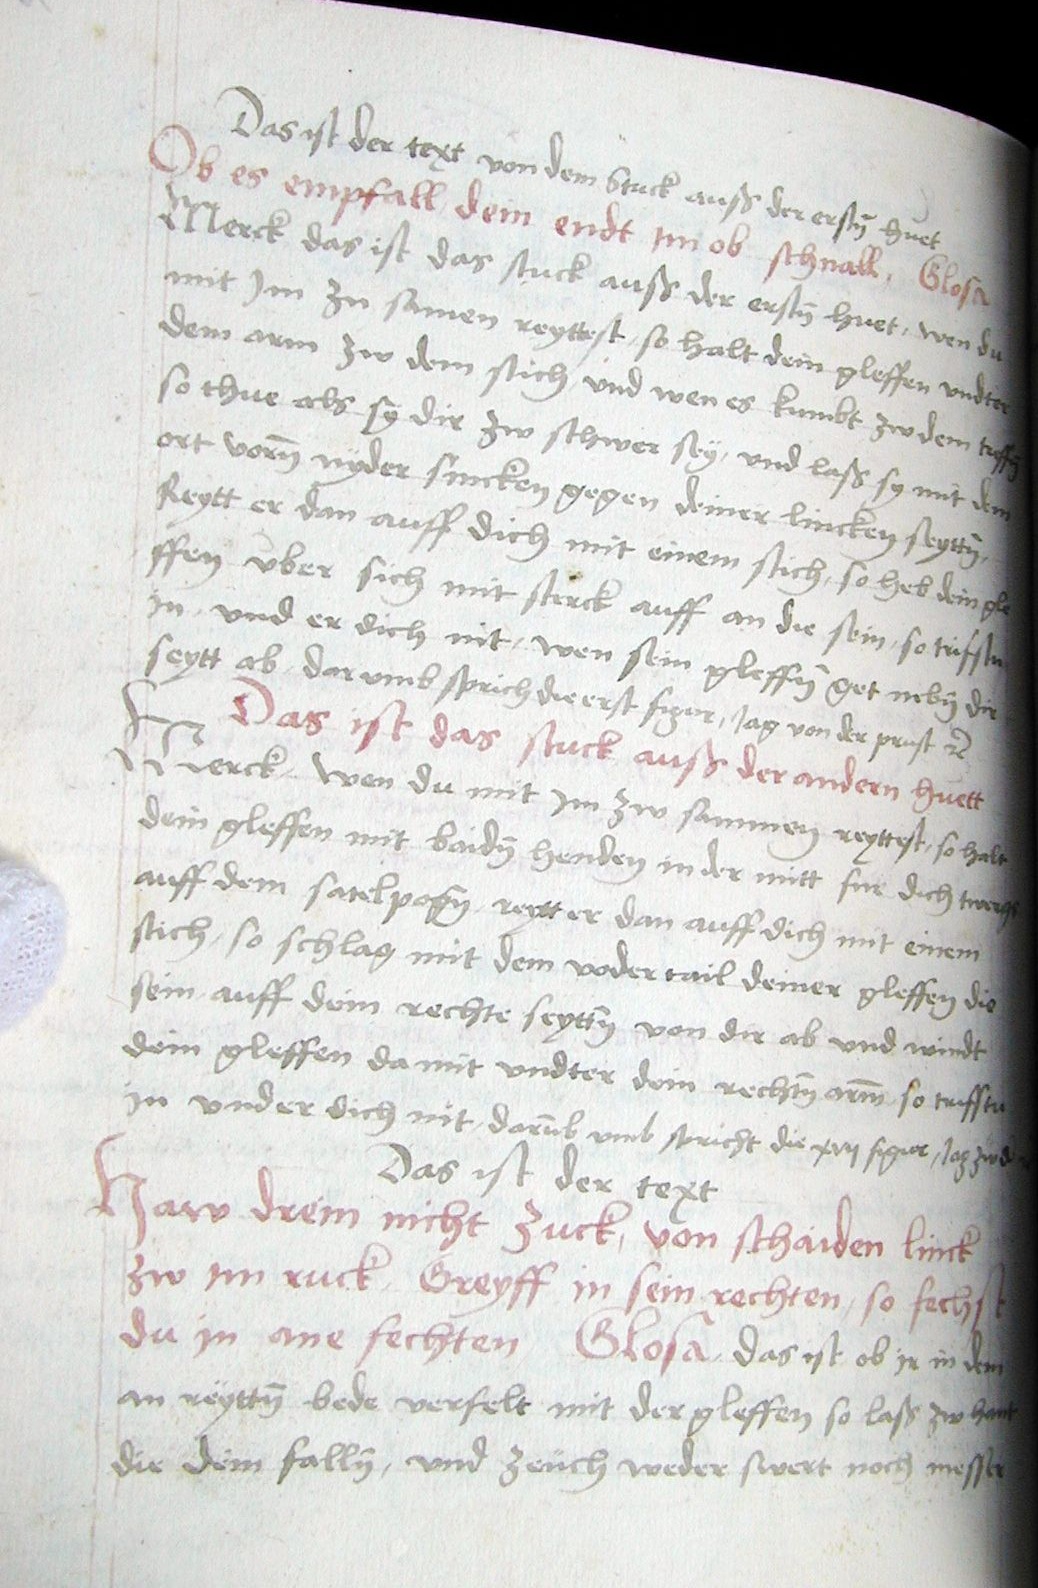 Das ist der text von dem stuck auß der erstn̄ huet
Ob es empfall dein endt im ob schnall, Glosa
Merck das ist das stuck auß der erstn̄ huet, wen du
mit Im zu samen reyttest, so halt dein gleffen vndter
dem arm zw dem stich, vnd wen es kumbt zw dem treffn̄
so thue als sy dir zw schwer sey, vnd laß sy mit dem
ort vorn̄ nyder sincken gegen deiner lincken seyttn̄,
Reytt er dan auff dich mit einem stich, so heb dein gle
ffen vber sich mit sterck auff an die sein, so trifstu
in, vnd er dich nit, wen sein gleffn̄ get nebn̄ dir
seytt ab, dar vmb sprich die erst figur, Jag von der prust ꝛc̄
Das ist das stuck auß der andern huett
Merck, wen du mit im zw sammen reyttest, so halt
dein gleffen mit baidn̄ henden in der mitt fur dich twerchs
auff dem satelpogn̄, reytt er dan auff dich mit einem
stich, so schlag mit dem voder tail deiner gleffen die
sein auff dein rechte seyttn̄ von dir ab vnd windt
dein gleffen da mit vndter dein rechtn̄ arm̄ so trifftu
in vnd er dich nit, darūb vmb spricht die xvij figur, Jag zw der
Das ist der text
Haw drein nicht zuck, von schaiden linck
zw im ruck, Greyff in sein rechten, so fechst
du in ane fechten Glosa, das ist ob ir in dem
an reyttn̄ bede verfelt mit der gleffen so laß zw hant
die dein falln̄, vnd zeuch weder swert noch messer